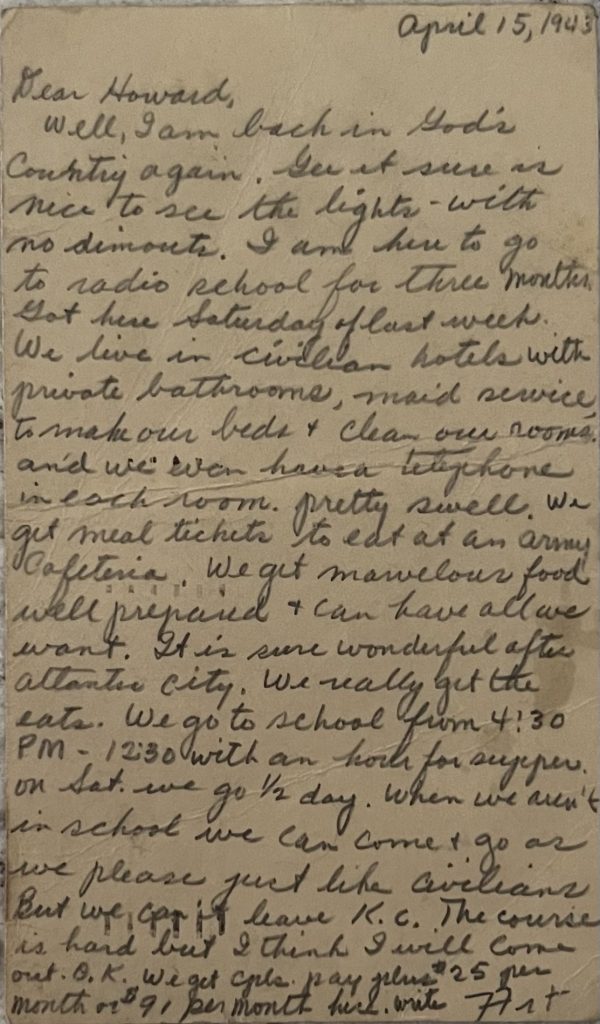 April 15, 1943
Dear Howard,
Well, I am back in God's
Country again. Gee it sure is
nice to see the lights - with
no dimouts. I am here to go
to radio school for three months.
Got here Saturday of last week.
We live in civilian hotels with
private bathrooms, maid service,
to make our beds + clean our rooms.
and we even have a telephone
in each room. pretty swell. We
get meal tickets to eat at an army
Cafeteria. We get marvelous food
well prepared + can have all we
want. It is sure wonderful after
atlantic city. We really get the
eats. We go to school from 4:30
PM - 12:30 with an hour for supper.
on Sat. we go 1/2 day. When we aren't
in school we can come + go as
we please just like civilians
But we can't leave K.C. The course
is hard but I think I will come
out O.K. We get cpls. pay plus $25 per
month or $91 per month here. write Art